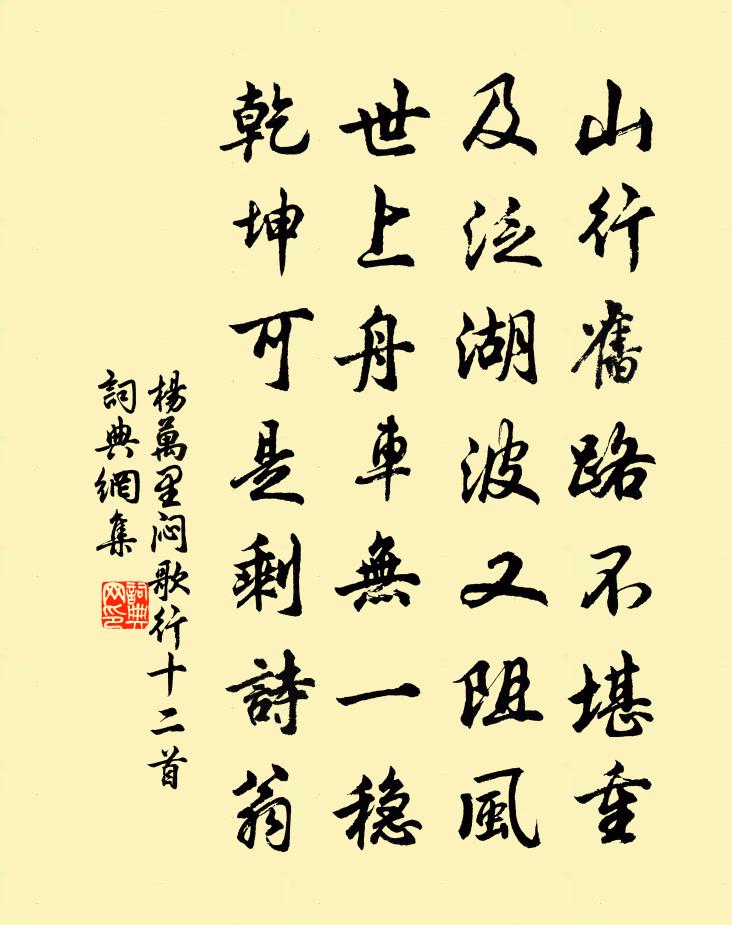 山行舊路不堪重
及泛湖波又阻風
世上舟車無一穩
乾坤可是剩詩翁
楊萬里悶歌行十二首
詞典網集
詞典
网印